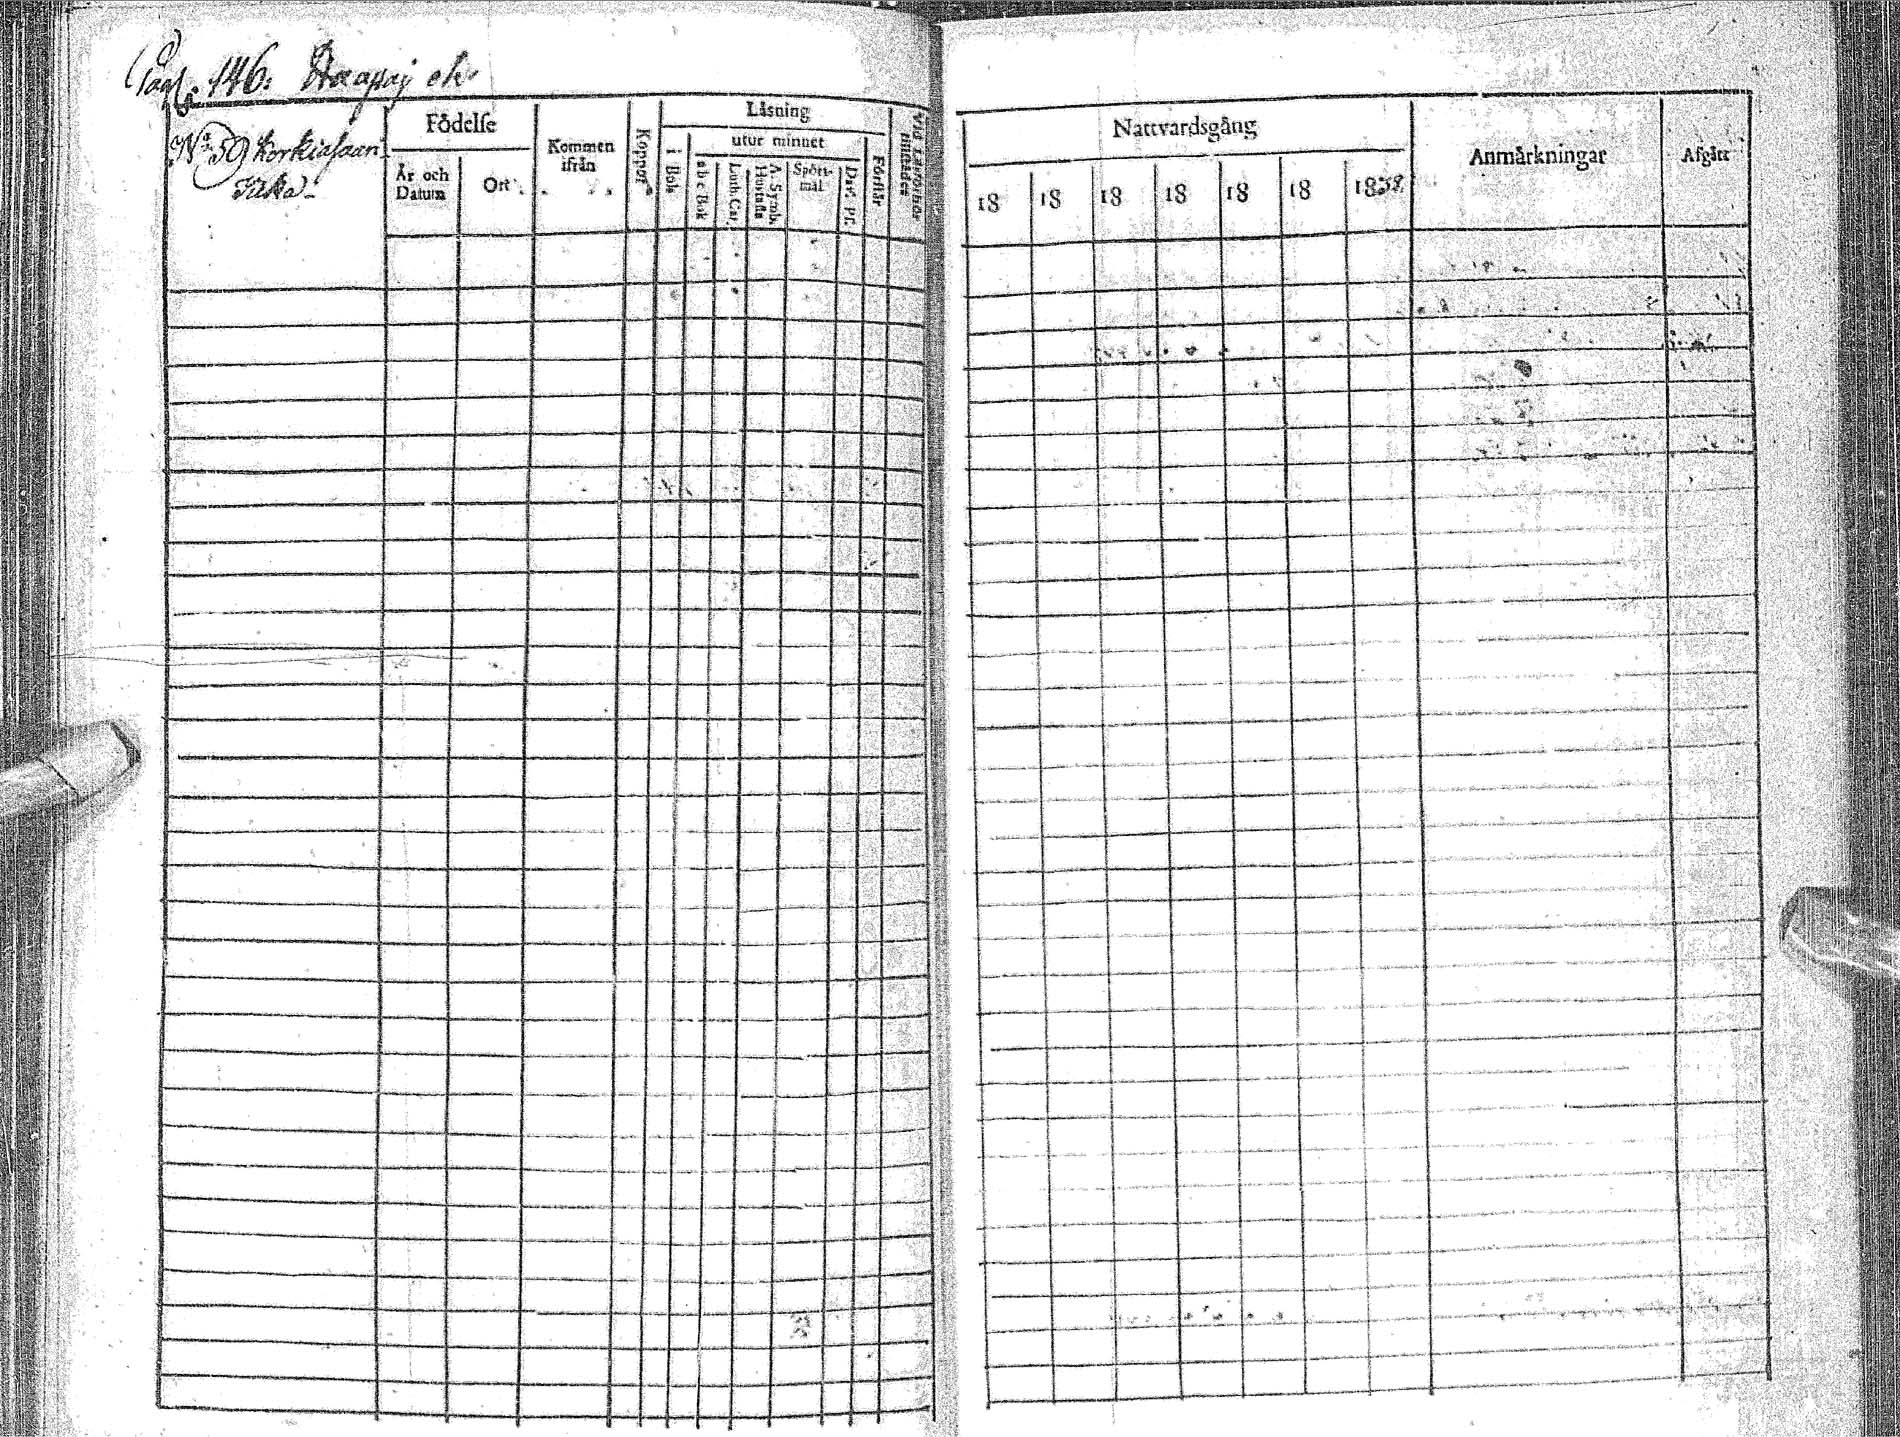 Pag. 146. Haapaj
No 59 Korkiasaari
Födelse
År och
Datum
Ort
Kommen
ifrån
Koppor
Läsning
i Bok
utur minnet
a b c Bok
Luth. Cat.
A. Symb.
Hustafla
Spörs-
mål
Dav. Ps.
Förstår
Nattvardsgång
18 18 18 18 18 18 1838.
Anmärkningar
Afgått